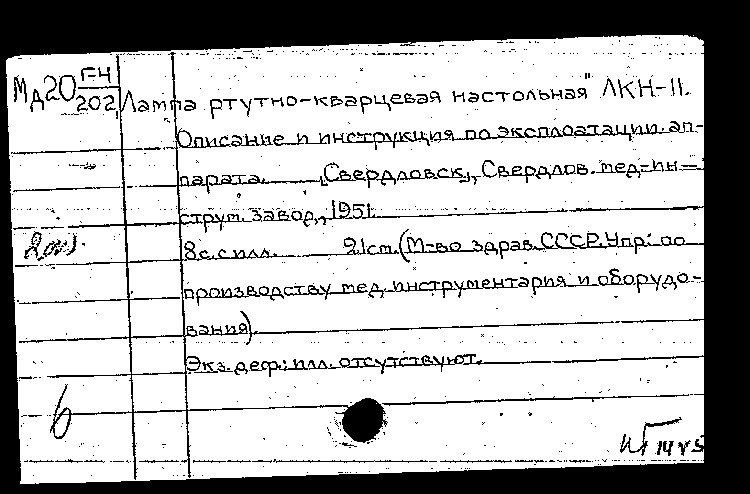 Мд20 Г-4/202
Лампа ртутно-кварцевая настольная" ЛКН-II.
Описание и инструкция по эксплоатации ап-
парата. [Свердловск], Свердлов. мед-ин-
струм. завод, 1951.
8с. с илл. 21см. (М-во здрав. СССР. Упр. по
производству мед. инструментария и оборудо-
вания).
Экз. деф.: илл. отсутствуют.
6